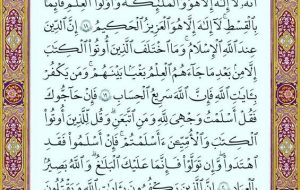 أَنَّهُۥ لَآ إِلَٰهَ إِلَّا هُوَ وَٱلْمَلَٰٓئِكَةُ وَأُو۟لُوا۟ ٱلْعِلْمِ قَآئِمًۢا
بِٱلْقِسْطِ ۚ لَآ إِلَٰهَ إِلَّا هُوَ ٱلْعَزِيزُ ٱلْحَكِيمُ ١٨ إِنَّ ٱلدِّينَ
عِندَ ٱللَّهِ ٱلْإِسْلَٰمُ ۗ وَمَا ٱخْتَلَفَ ٱلَّذِينَ أُوتُوا۟ ٱلْكِتَٰبَ
إِلَّا مِنۢ بَعْدِ مَا جَآءَهُمُ ٱلْعِلْمُ بَغْيًۢا بَيْنَهُمْ ۗ وَمَن يَكْفُرْ
بِـَٔايَٰتِ ٱللَّهِ فَإِنَّ ٱللَّهَ سَرِيعُ ٱلْحِسَابِ ١٩ فَإِنْ حَآجُّوكَ
فَقُلْ أَسْلَمْتُ وَجْهِىَ لِلَّهِ وَمَنِ ٱتَّبَعَنِ ۗ وَقُل لِّلَّذِينَ أُوتُوا۟
ٱلْكِتَٰبَ وَٱلْأُمِّيِّـۧنَ ءَأَسْلَمْتُمْ ۚ فَإِنْ أَسْلَمُوا۟ فَقَدِ
ٱهْتَدَوا۟ ۖ وَّإِن تَوَلَّوْا۟ فَإِنَّمَا عَلَيْكَ ٱلْبَلَٰغُ ۗ وَٱللَّهُ بَصِيرٌۢ
بِٱلْعِبَادِ ٢٠ إِنَّ ٱلَّذِينَ يَكْفُرُونَ بِـَٔايَٰتِ ٱللَّهِ وَيَقْتُلُونَ